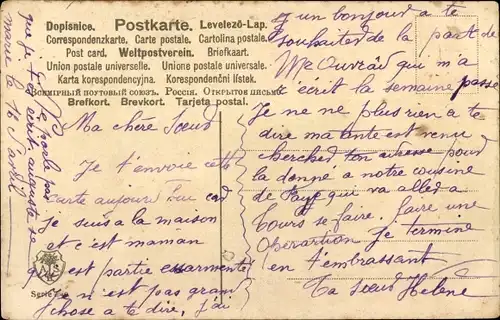 Dopisnice. Postkarte. Levelező-Lap.
Correspondenzkarte. Carte postale. Cartolina postale.
Post card. Weltpostverein. Briefkaart.
Union postale universelle. Unione postale universale.
Karta korespondencyjna. Korespondenční lístek.
Всемирный почтовый союзъ. Россія. Открытое письмо.
Brefkort. Brevkort. Tarjeta postal.
Ma chère Sœud
Je t'envoie cette
carte aujourd'hui card
je suis a la maison
et c'est maman
qui est partie essarmente
Je n'est pas grand
chose a te dire, j'ai
Serie
un bonjour a te
souhaiter de la part de
Mr Ouvrad qui m'a
écrit la semaine passe
Je ne ne plus rien a te
dire ma tante est venu
cherched ton adresse pour
la donné a notre cousine
de Paye qui va alled a
Tours se faire, faire une
Oberartion Je termine
en t'embrassant
Ta sœud Helene
que je t'ai écrit auguste se
marie le 18 Savril